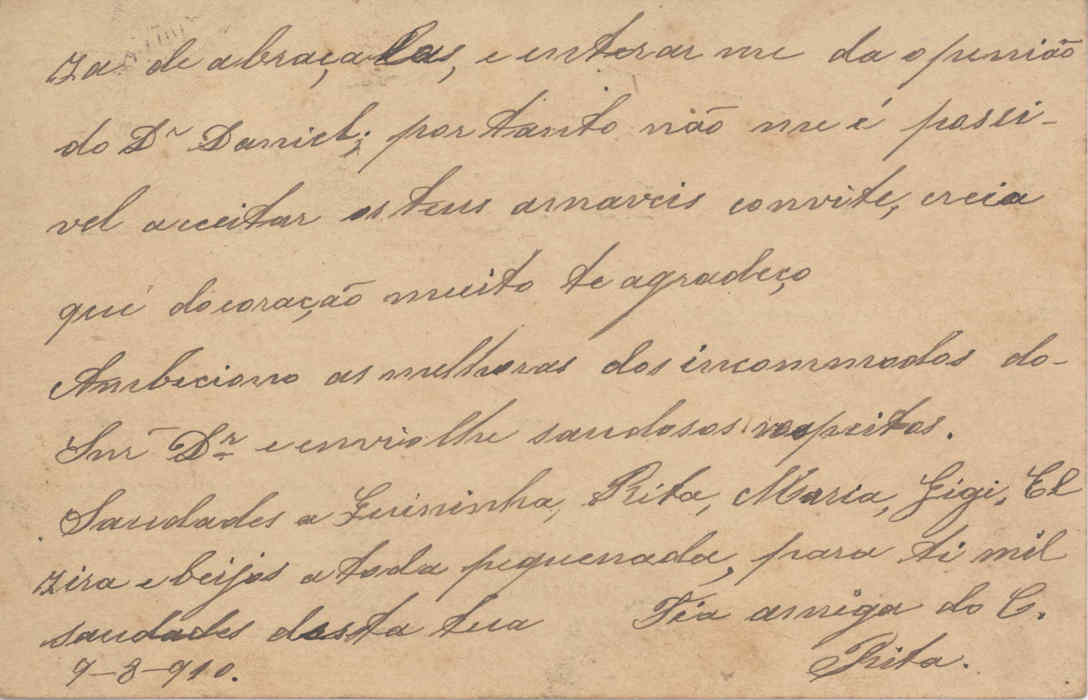 za de abraçalas, e enterar me da openião
do Dr Daniel; por tanto não me é possi-
vel acceitar os teus amaveis convite, creia
que do coração muito te agradeço
Ambeciono as melhoras dos incommodos do-
Snr Dr e envio lhe saudosos respeitos.
Saudades a Luininha, Rita, Maria, Gigi, El
zira e beijos a toda pequenada, para ti mil
saudades desta tua Tia amiga do C.
9-3-910. Rita.